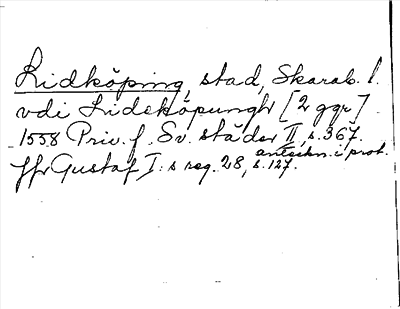 Lidköping, stad, Skarab. l.
vdi Lideköpungh [2 ggr]
1558 Priv. f. Sv. städer II, s. 367.
anteckn. i prot.
Jfr Gustaf I:s reg. 28, s. 127.